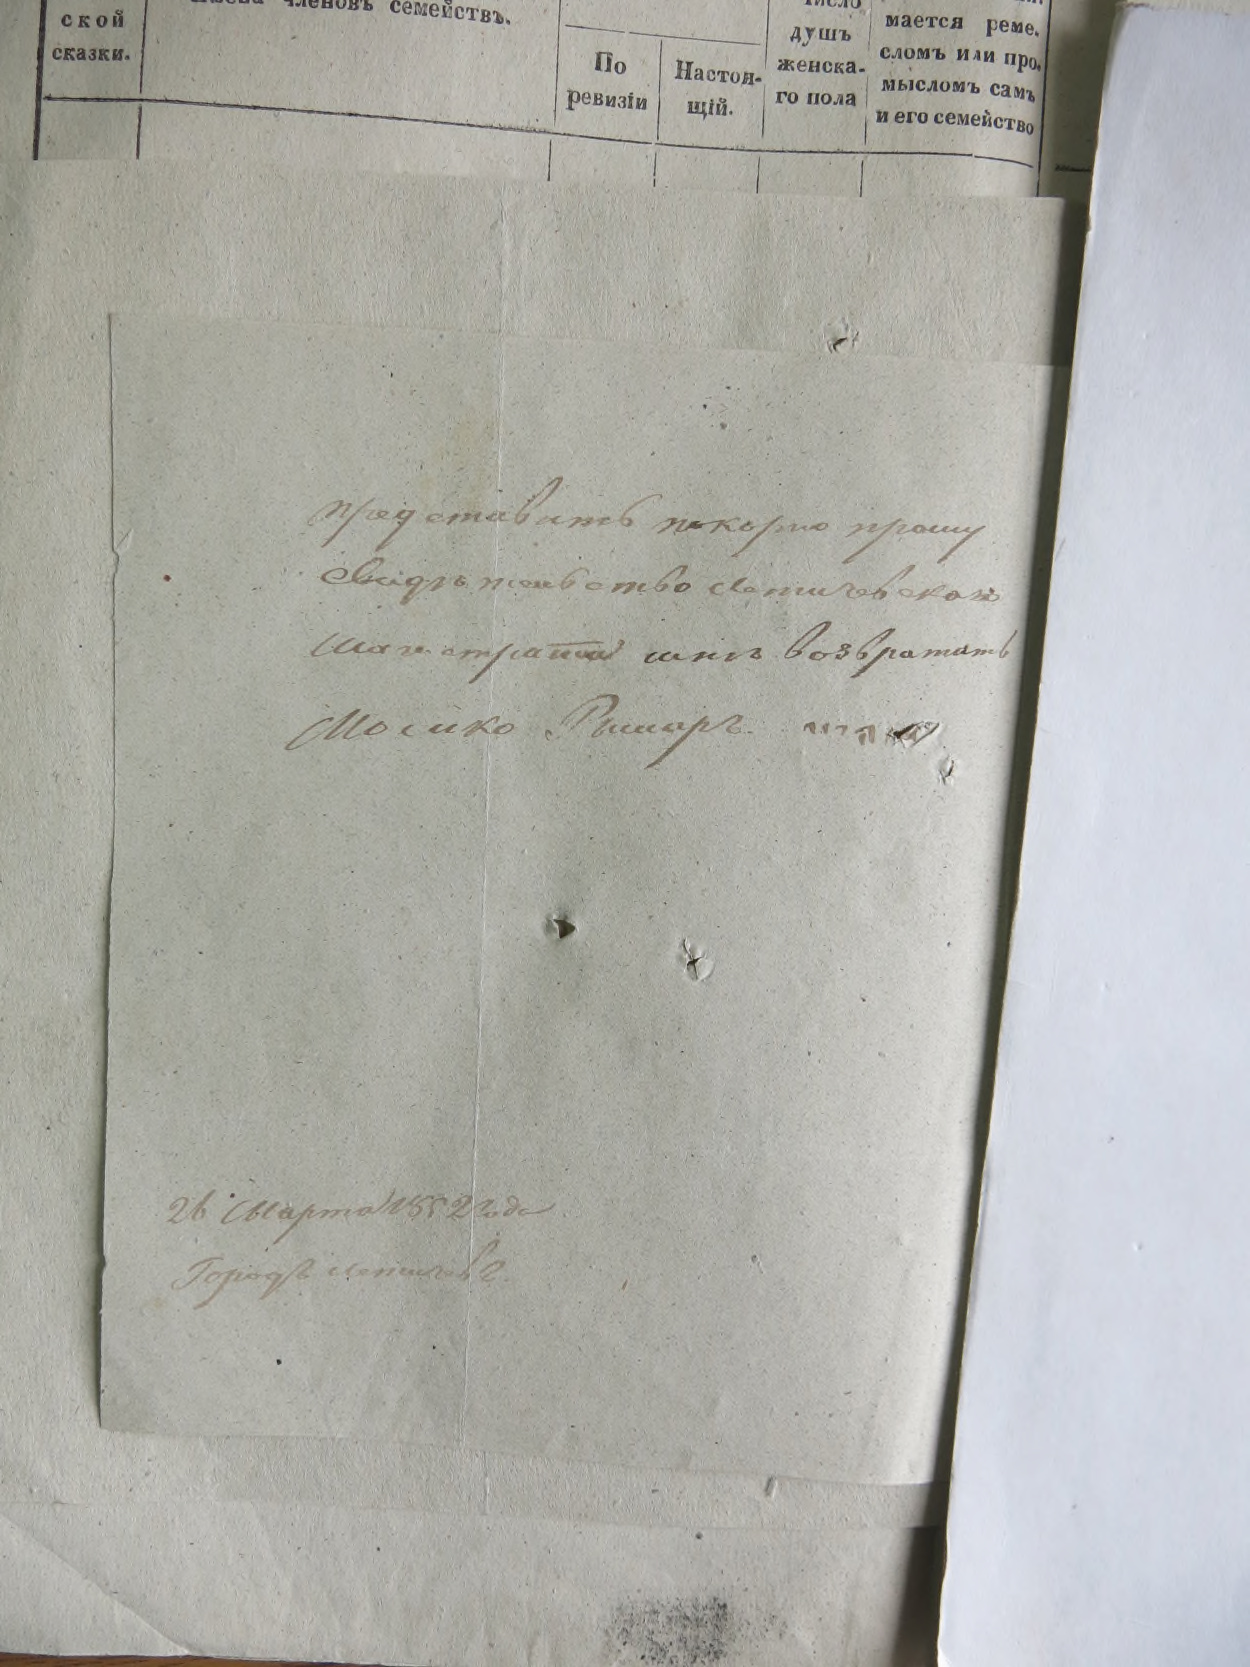 ской
сказки.
членовъ семействъ.
По
ревизіи
Настоя-
щій.
душъ
женска-
го пола
мается реме.
сломъ или про.
мысломъ самъ
и его семейство
представить покорно прошу
Свидѣтельство Летичевскаго
Магистрата мнѣ возвратить
Мосико Рымаръ.
26 Марта 1852 года
Городъ Летичевъ